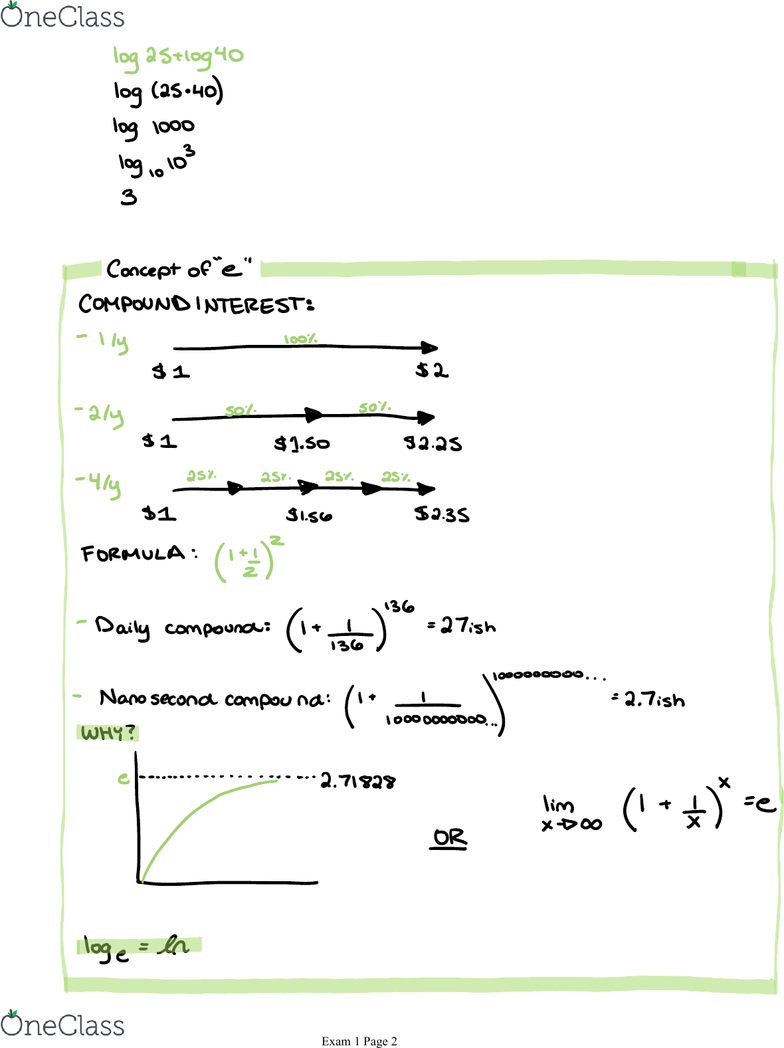 OneClass
log 25+log40
log (25·40)
log 1000
log₁₀10³
3
Concept of "e"
COMPOUND INTEREST:
- 1/y
100%
$1 $2
-2/y
50% 50%
$1 $1.50 $2.25
-4/y
25% 25% 25% 25%
$1 $1.56 $2.35
FORMULA: (1+1/2)²
- Daily compound: (1+ 1/136)¹³⁶ = 27ish
- Nanosecond compound: (1+ 1/1000000000...)¹⁰⁰⁰⁰⁰⁰⁰⁰⁰··· = 2.7ish
WHY?
e 2.71828
OR
lim x→∞ (1 + 1/x)ˣ = e
logₑ = ln
OneClass
Exam 1 Page 2